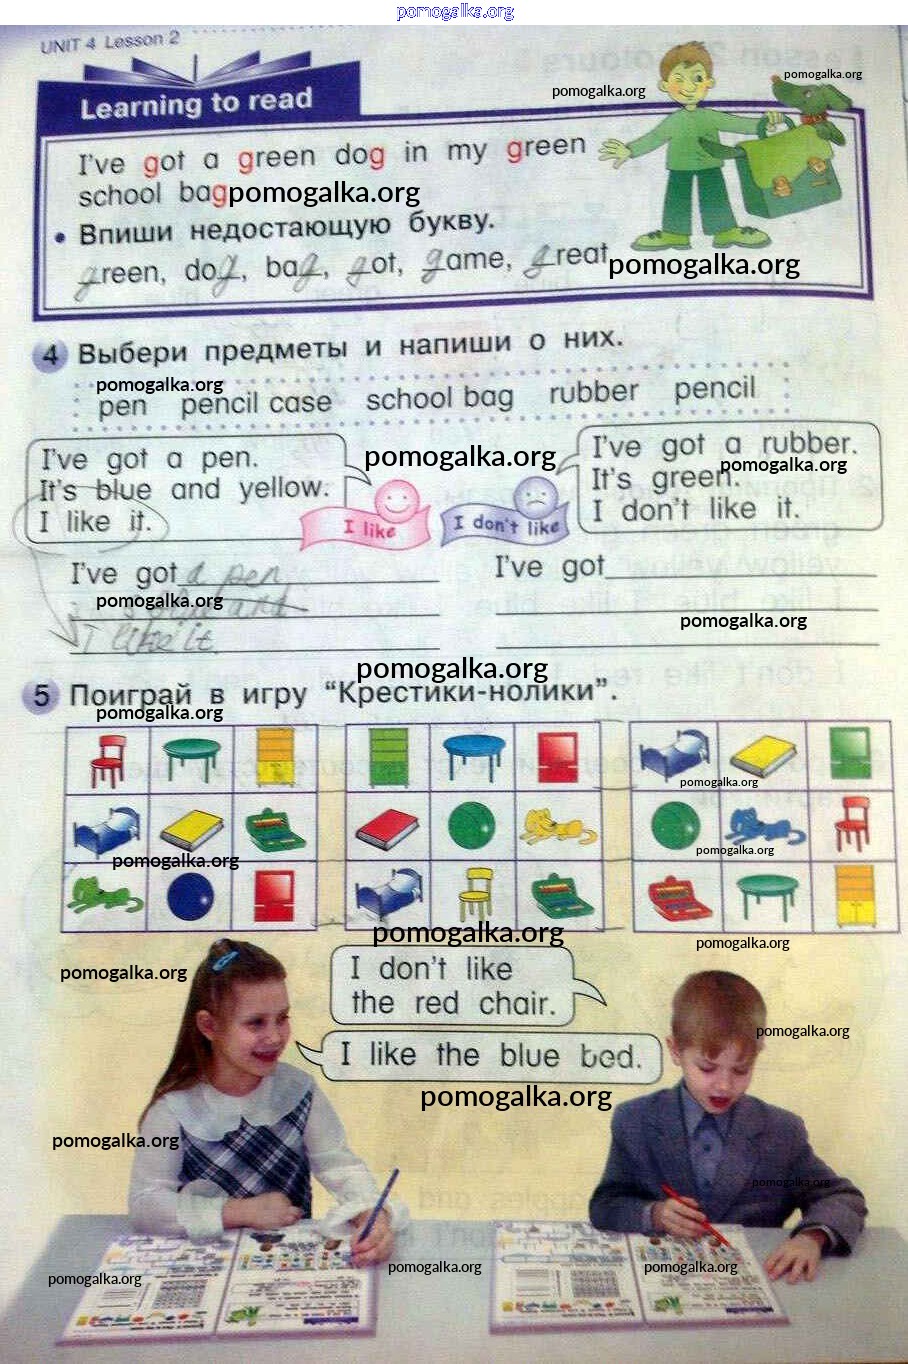 pomogalka.org
UNIT 4 Lesson 2
Learning to read
pomogalka.org
pomogalka.org
I've got a green dog in my green
school bag
pomogalka.org
• Впиши недостающую букву.
green, dog, bag, got, game, great
pomogalka.org
4 Выбери предметы и напиши о них.
pomogalka.org
pen pencil case school bag rubber pencil
I've got a pen.
It's blue and yellow.
I like it.
pomogalka.org
I like
I don't like
I've got a rubber.
It's green.
I don't like it.
pomogalka.org
I've got a pen
pomogalka.org
blue and
I like it.
I've got
pomogalka.org
pomogalka.org
5 Поиграй в игру “Крестики-нолики”.
pomogalka.org
pomogalka.org
pomogalka.org
pomogalka.org
pomogalka.org
pomogalka.org
pomogalka.org
I don't like
the red chair.
pomogalka.org
I like the blue bed.
pomogalka.org
pomogalka.org
pomogalka.org
pomogalka.org
pomogalka.org
pomogalka.org